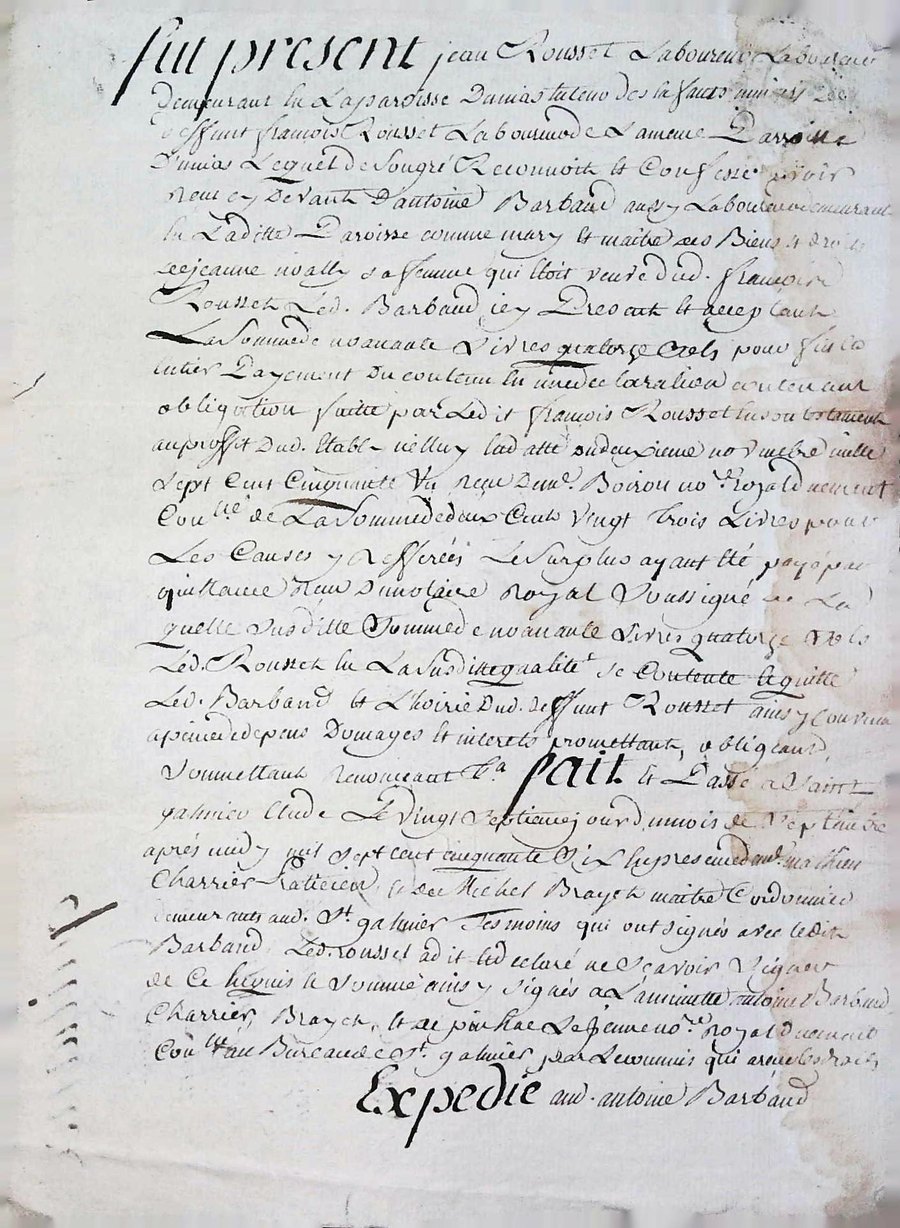 fut present jean Rousset Laboureur Laboureur
Demeurant en La paroisse Dunias tuteur des Enfants mineurs de
deffunt françois Rousset Laboureur de La meme Parroisse
Dunias Lequel de Son gré Reconnoit et Confesse avoir
Reçu cy Devant D'antoine Barbaud aussy Laboureur demeurant
En Laditte Paroisse comme mary et maitre des Biens et droits
de jeanne noally sa femme qui Etoit veuve dud. françois
Rousset Led. Barbaud icy Present et acceptant
La Somme de nonante Livres quatorze Sols pour fin et
Entier Payement Du contenu En une declaration contenant
obligation faitte par Ledit françois Rousset En son testament
au proffit Dud. En datte du deuxieme novembre mille
Sept Cent Cinquante Reçu De me. Boiron nore. Royal duement
Conllé de La Somme de deux Cents vingt trois Livres pour
Les Causes y Refferées Le Surplus ayant Eté payé par
quittance Reçu Du notaire Royal Soussigné de La
quelle Susditte Somme de nonante Livres quatorze Sols
Led. Rousset En La Susditte qualité se Contente Et quitte
Led. Barband Et L'hoirie Dud. deffunt Rousset ainsy Convenu
a peine de depens Domages Et interets promettant, obligeant
Soumettant Renonceant &a fait Et Passé a Saint
galmier Etude Le Vingt Septieme jour du mois de Septembre
aprés midy mil Sept cent cinquante Six En presence de me. mathieu
Charrier Praticien Et de Michel Brayet maitre Cordonnier
demeurants aud. St. galmier Tesmoins qui ont signés avec ledit
Barband Led. rousset a dit Et declaré ne Sçavoir Signer
de Ce Enquis Et Sommé ainsy Signés a La minutte antoine Barband
Charrier Brayet, Et de pinhac Le jeune nore. Royal duement
Conllé au Bureau de St. galmier par Le commis qui a reçu les droits
Expedié aud. antoine Barband